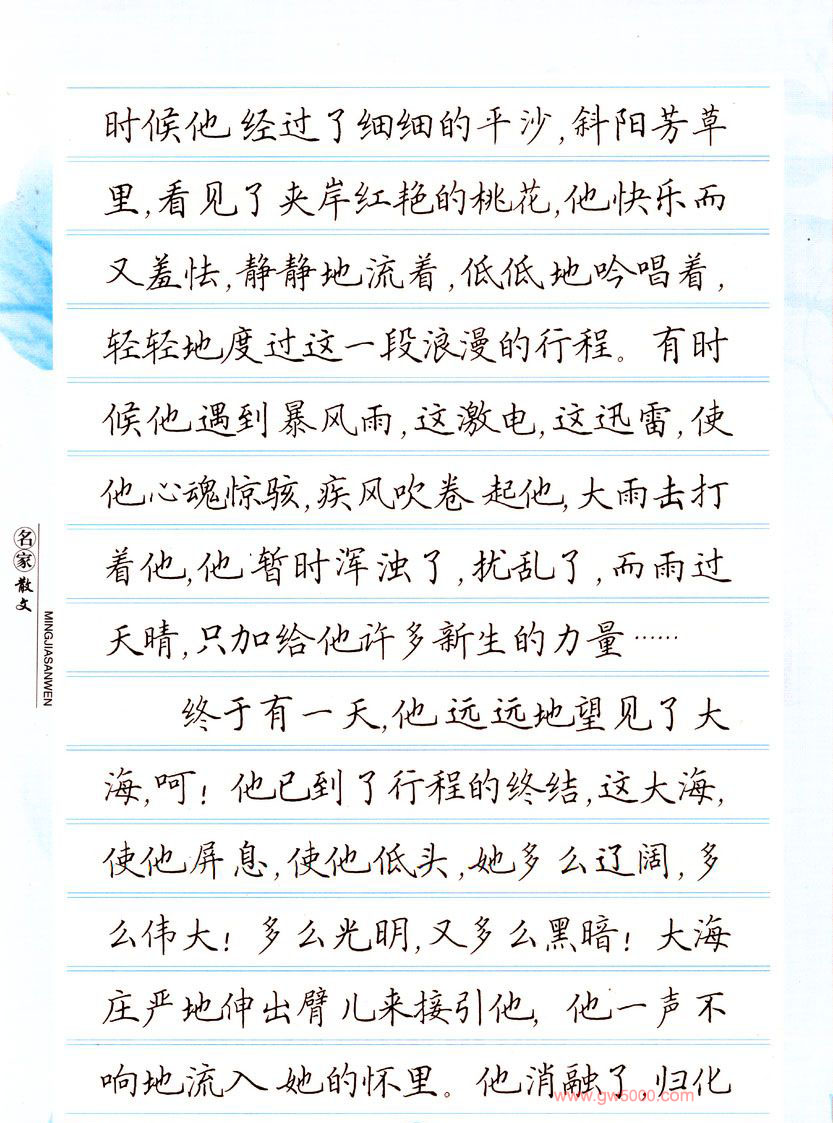 时候他经过了细细的平沙,斜阳芳草
里,看见了夹岸红艳的桃花,他快乐而
又羞怯,静静地流着,低低地吟唱着,
轻轻地度过这一段浪漫的行程。有时
候他遇到暴风雨,这激电,这迅雷,使
他心魂惊骇,疾风吹卷起他,大雨击打
着他,他暂时浑浊了,扰乱了,而雨过
天晴,只加给他许多新生的力量……
终于有一天,他远远地望见了大
海,呵!他已到了行程的终结,这大海,
使他屏息,使他低头,她多么辽阔,多
么伟大!多么光明,又多么黑暗!大海
庄严地伸出臂儿来接引他,他一声不
响地流入她的怀里。他消融了,归化
名家散文
MINGJIASANWEN
www.gw5000.com